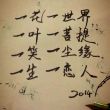 一花一世界
一叶一菩提
一笑一尘缘
一生一恋人
2014